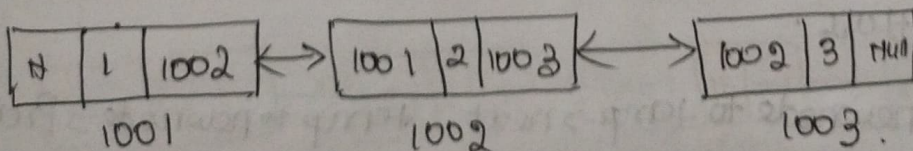 N 1 1002 1001 2 1003 1002 3 Null
1001 1002 1003.